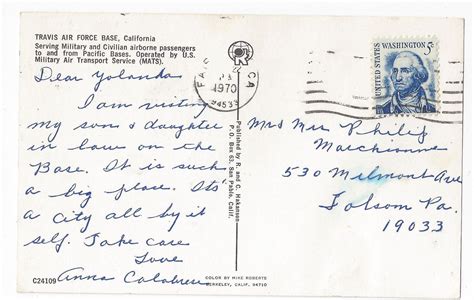 TRAVIS AIR FORCE BASE, California
Serving Military and Civilian airborne passengers
to and from Pacific Bases. Operated by U.S.
Military Air Transport Service (MATS).
Dear Yolanda
I am visiting
my son & daughter
in law on the
Base. It is such
a big place. It's
a city all by it
self. Take care
Love
Anna Calabrese
C24109
Published by R and C. Hakanson
P. O. Box 63, San Pablo, Calif.
COLOR BY MIKE ROBERTS
BERKELEY, CALIF. 94710
R
CA
1970
94533
UNITED STATES
WASHINGTON 5c
Mr & Mrs Philip
Marchionne
530 Milmont Ave
Folsom Pa.
19033